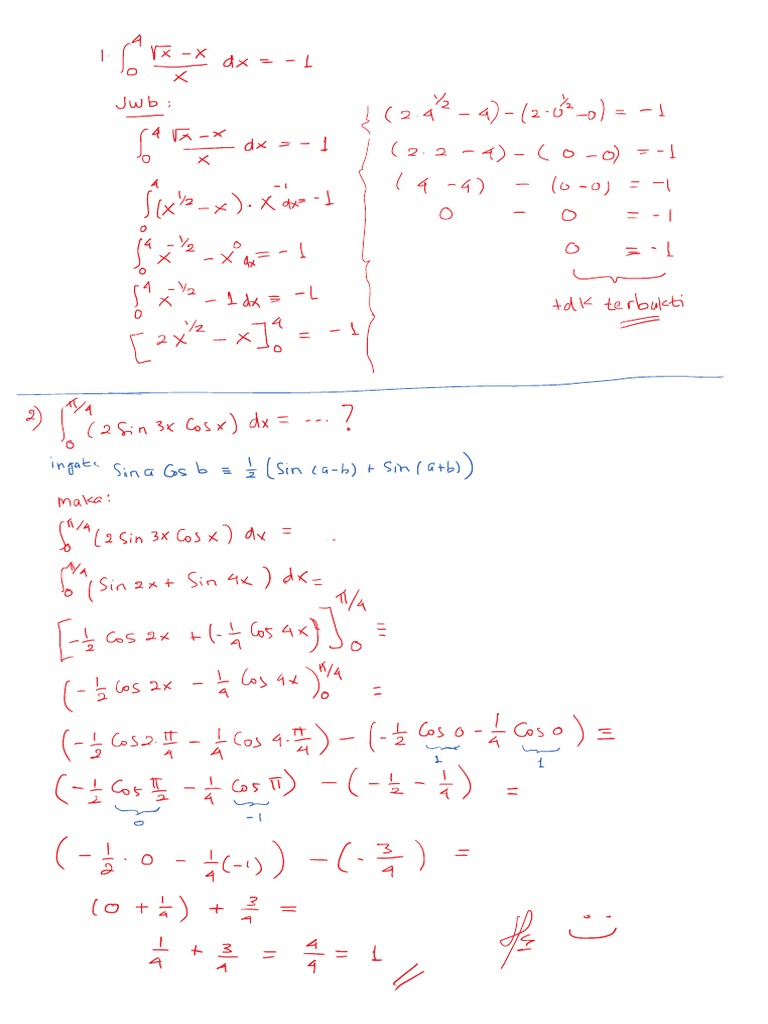 1. ∫₀⁴ (√x − x)/x dx = −1
Jwb :
∫₀⁴ (√x − x)/x dx = −1
∫₀⁴ (x^(1/2) − x) · x^(−1) dx = −1
∫₀⁴ x^(−1/2) − x⁰ dx = −1
∫₀⁴ x^(−1/2) − 1 dx = −1
[2x^(1/2) − x]₀⁴ = −1
(2·4^(1/2) − 4) − (2·0^(1/2) − 0) = −1
(2·2 − 4) − (0 − 0) = −1
(4 − 4) − (0−0) = −1
0 − 0 = −1
0 = −1
tdk terbukti
2) ∫₀^(π/4) (2 Sin 3x Cos x) dx = ... ?
ingat: Sin a Cos b = 1/2 (Sin (a−b) + Sin (a+b))
maka:
∫₀^(π/4) (2 Sin 3x Cos x) dx = ..
∫₀^(π/4) (Sin 2x + Sin 4x) dx =
[−1/2 Cos 2x + (−1/4 Cos 4x)]₀^(π/4) =
(−1/2 Cos 2x − 1/4 Cos 4x)₀^(π/4) =
(−1/2 Cos 2·π/4 − 1/4 Cos 4·π/4) − (−1/2 Cos 0 − 1/4 Cos 0) =
1 1
(−1/2 Cos π/2 − 1/4 Cos π) − (−1/2 − 1/4) =
0 −1
(−1/2 · 0 − 1/4 (−1)) − (−3/4) =
(0 + 1/4) + 3/4 =
1/4 + 3/4 = 4/4 = 1